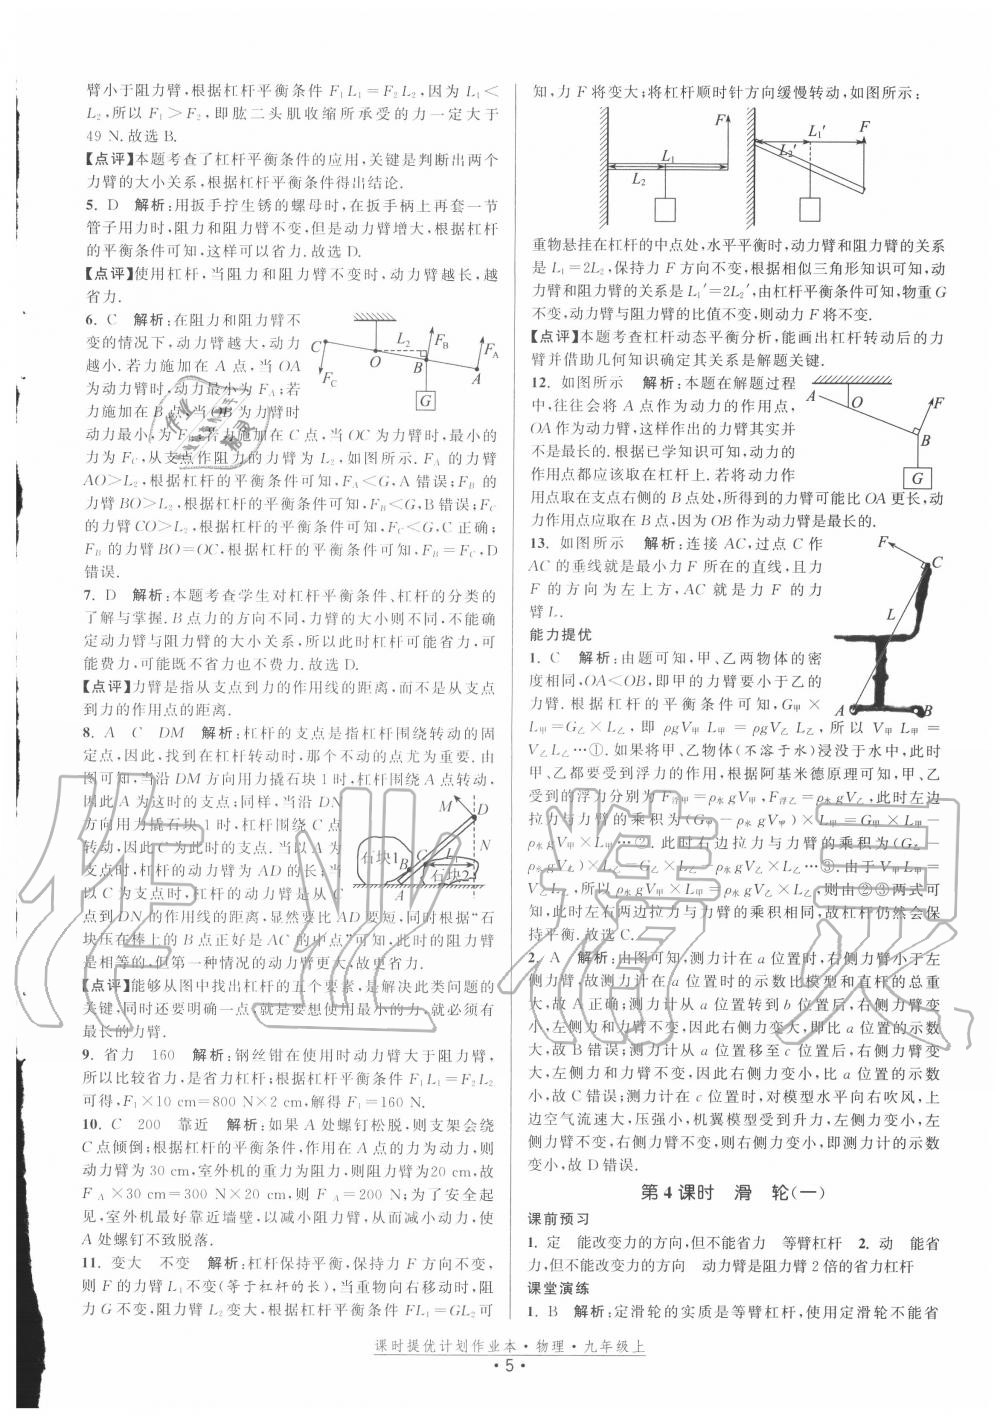 臂小于阻力臂,根据杠杆平衡条件 F₁L₁=F₂L₂,因为 L₁<
L₂,所以 F₁>F₂,即肱二头肌收缩所承受的力一定大于
49 N.故选 B.
【点评】本题考查了杠杆平衡条件的应用,关键是判断出两个
力臂的大小关系,根据杠杆平衡条件得出结论.
5. D 解析:用扳手拧生锈的螺母时,在扳手柄上再套一节
管子用力时,阻力和阻力臂不变,但是动力臂增大,根据杠杆
的平衡条件可知,这样可以省力.故选 D.
【点评】使用杠杆,当阻力和阻力臂不变时,动力臂越长,越
省力.
6. C 解析:在阻力和阻力臂不
变的情况下,动力臂越大,动力
越小.若力施加在 A 点,当 OA
为动力臂时,动力最小为 F_A;若
力施加在 B 点,当 OB 为力臂时
动力最小,为 F_B;若施加在 C 点,当 OC 为力臂时,最小的
力为 F_C,从支点作阻力的力臂为 L₂,如图所示.F_A 的力臂
AO>L₂,根据杠杆的平衡条件可知,F_A<G,A 错误;F_B 的
力臂 BO>L₂,根据杠杆的平衡条件可知,F_B<G,B 错误;F_C
的力臂 CO>L₂,根据杠杆的平衡条件可知,F_C<G,C 正确;
F_B 的力臂 BO=OC,根据杠杆的平衡条件可知,F_B=F_C,D
错误.
7. D 解析:本题考查学生对杠杆平衡条件、杠杆的分类的
了解与掌握.B 点力的方向不同,力臂的大小则不同,不能确
定动力臂与阻力臂的大小关系,所以此时杠杆可能省力,可
能费力,可能既不省力也不费力.故选 D.
【点评】力臂是指从支点到力的作用线的距离,而不是从支点
到力的作用点的距离.
8. A C DM 解析:杠杆的支点是指杠杆围绕转动的固
定点,因此,找到在杠杆转动时,那个不动的点尤为重要.由
图可知,当沿 DM 方向用力撬石块 1 时,杠杆围绕 A 点转动,
因此 A 为这时的支点;同样,当沿 DN
方向用力撬石块 2 时,杠杆围绕 C 点
转动,因此 C 为此时的支点.当以 A 为
支点时,杠杆的动力臂为 AD 的长;当
以 C 为支点时,杠杆的动力臂是从 C
点到 DN 的作用线的距离,显然要比 AD 要短,同时根据“石
块压在棒上的 B 点正好是 AC 的中点”可知,此时的阻力臂
是相等的,但第一种情况的动力臂更大,故更省力.
【点评】能够从图中找出杠杆的五个要素,是解决此类问题的
关键,同时还要明确一点,就是要想使用最小的力,就必须有
最长的力臂.
9. 省力 160 解析:钢丝钳在使用时动力臂大于阻力臂,
所以比较省力,是省力杠杆;根据杠杆平衡条件 F₁L₁=F₂L₂
可得,F₁×10 cm=800 N×2 cm,解得 F₁=160 N.
10. C 200 靠近 解析:如果 A 处螺钉松脱,则支架会绕
C 点倾倒;根据杠杆的平衡条件,作用在 A 点的力为动力,则
动力臂为 30 cm,室外机的重力为阻力,则阻力臂为20 cm,故
F_A×30 cm=300 N×20 cm,则 F_A=200 N;为了安全起
见,室外机最好靠近墙壁,以减小阻力臂,从而减小动力,使
A 处螺钉不致脱落.
11. 变大 不变 解析:杠杆保持平衡,保持力 F 方向不变,
则 F 的力臂 L₁ 不变(等于杠杆的长),当重物向右移动时,阻
力 G 不变,阻力臂 L₂ 变大,根据杠杆平衡条件 FL₁=GL₂ 可
知,力 F 将变大;将杠杆顺时针方向缓慢转动,如图所示:
重物悬挂在杠杆的中点处,水平平衡时,动力臂和阻力臂的关系
是 L₁=2L₂,保持力 F 方向不变,根据相似三角形知识可知,动
力臂和阻力臂的关系是 L₁′=2L₂′,由杠杆平衡条件可知,物重 G
不变,动力臂与阻力臂的比值不变,则动力 F 将不变.
【点评】本题考查杠杆动态平衡分析,能画出杠杆转动后的力
臂并借助几何知识确定其关系是解题关键.
12. 如图所示 解析:本题在解题过程
中,往往会将 A 点作为动力的作用点,
OA 作为动力臂,这样作出的力臂其实并
不是最长的.根据已学知识可知,动力的
作用点都应该取在杠杆上.若将动力作
用点取在支点右侧的 B 点处,所得到的力臂可能比 OA 更长,动
力作用点应取在 B 点,因为 OB 作为动力臂是最长的.
13. 如图所示 解析:连接 AC,过点 C 作
AC 的垂线就是最小力 F 所在的直线,且力
F 的方向为左上方,AC 就是力 F 的力
臂 L.
能力提优
1. C 解析:由题可知,甲、乙两物体的密
度相同,OA<OB,即甲的力臂要小于乙的
力臂.根据杠杆的平衡条件可知,G甲×
L甲=G乙×L乙,即 ρgV甲L甲=ρgV乙L乙,所以 V甲L甲=
V乙L乙…①.如果将甲、乙物体(不溶于水)浸没于水中,此时
甲、乙都要受到浮力的作用,根据阿基米德原理可知,甲、乙
受到的浮力分别为 F浮甲=ρ水gV甲,F浮乙=ρ水gV乙,此时左边
拉力与力臂的乘积为(G甲-ρ水gV甲)×L甲=G甲×L甲-
ρ水gV甲×L甲…②.此时右边拉力与力臂的乘积为(G乙-
ρ水gV乙)×L乙=G乙×L乙-ρ水gV乙×L乙…③.由于 V甲L甲=
V乙L乙,所以 ρ水gV甲×L甲=ρ水gV乙×L乙,则由②③两式可
知,此时左右两边拉力与力臂的乘积相同,故杠杆仍然会保
持平衡.故选 C.
2. A 解析:由图可知,测力计在 a 位置时,右侧力臂小于左
侧力臂,故测力计在 a 位置时的示数比模型和直杆的总重
大,故 A 正确;测力计从 a 位置转到 b 位置后,右侧力臂变
小,左侧力和力臂不变,因此右侧力变大,即比 a 位置的示数
大,故 B 错误;测力计从 a 位置移至 c 位置后,右侧力臂变
大,左侧力和力臂不变,因此右侧力变小,即比 a 位置的示数
小,故 C 错误;测力计在 c 位置时,对模型水平向右吹风,上
边空气流速大,压强小,机翼模型受到升力,左侧力变小,左
侧力臂不变,右侧力臂不变,则右侧力变小,即测力计的示数
变小,故 D 错误.
第 4 课时 滑 轮(一)
课前预习
1. 定 能改变力的方向,但不能省力 等臂杠杆 2. 动 能省
力,但不能改变力的方向 动力臂是阻力臂 2 倍的省力杠杆
课堂演练
1. B 解析:定滑轮的实质是等臂杠杆,使用定滑轮不能省
课时提优计划作业本·物理·九年级上
·5·
作业精灵